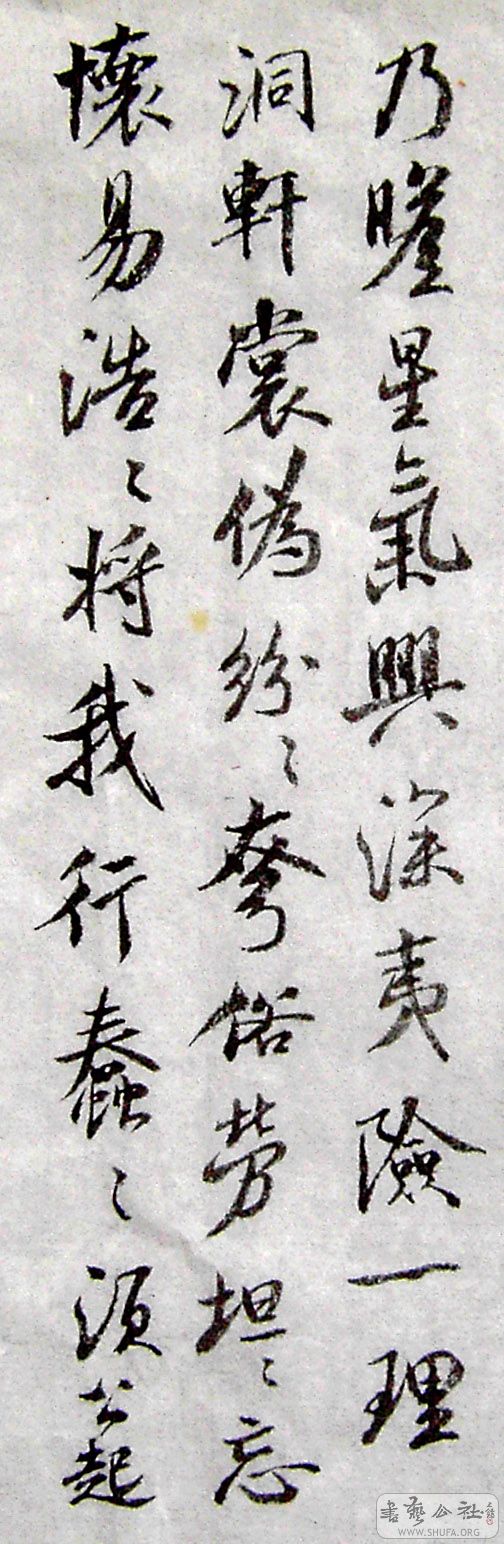 乃瞻星氣興深夷險一理
洞軒裳偽紛〻夸俗勞坦〻忘
懷易浩〻將我行蠢〻須公起
書藝公社
WWW.SHUFA.ORG